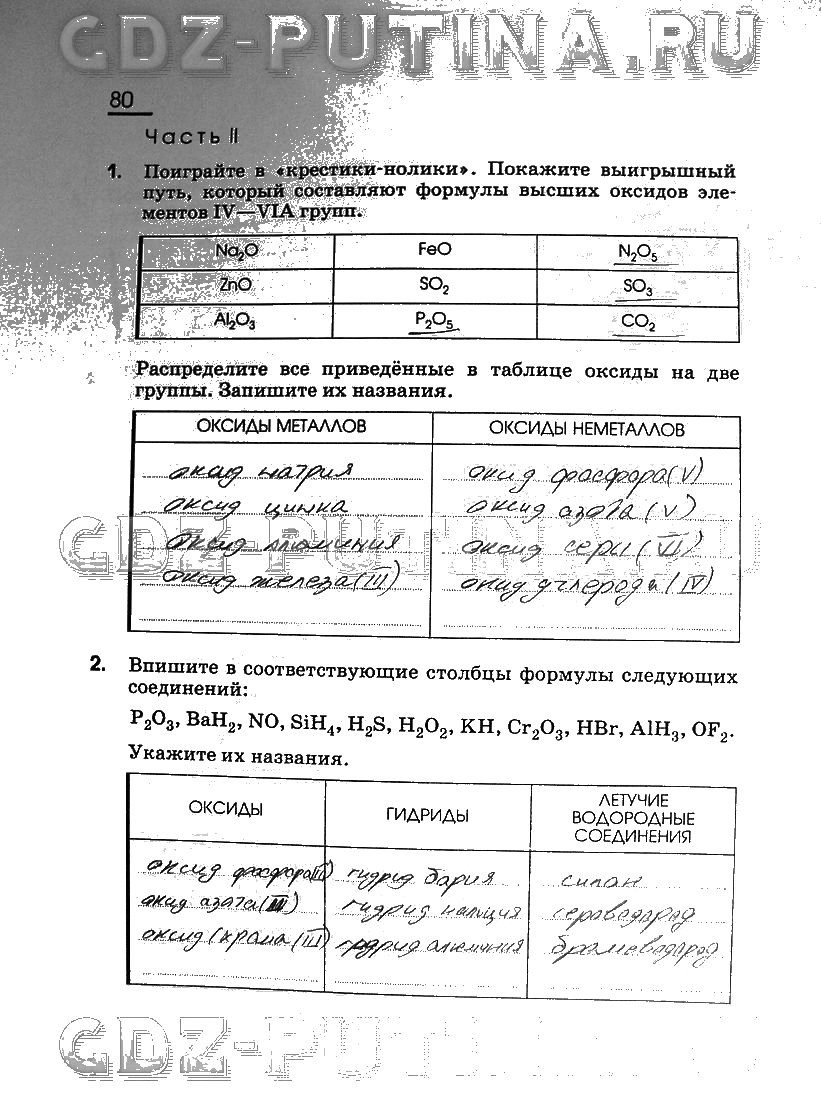 GDZ-PUTINA.RU
80
Часть II
1. Поиграйте в «крестики-нолики». Покажите выигрышный
путь, который составляют формулы высших оксидов эле-
ментов IV—VIA групп.
Na₂O FeO N₂O₅
ZnO SO₂ SO₃
Al₂O₃ P₂O₅ CO₂
Распределите все приведённые в таблице оксиды на две
группы. Запишите их названия.
ОКСИДЫ МЕТАЛЛОВ ОКСИДЫ НЕМЕТАЛЛОВ
оксид натрия оксид фосфора (V)
оксид цинка оксид азота (V)
оксид алюминия оксид серы (VI)
оксид железа (III) оксид углерода (IV)
2. Впишите в соответствующие столбцы формулы следующих
соединений:
P₂O₃, BaH₂, NO, SiH₄, H₂S, H₂O₂, KH, Cr₂O₃, HBr, AlH₃, OF₂.
Укажите их названия.
ОКСИДЫ ГИДРИДЫ ЛЕТУЧИЕ
ВОДОРОДНЫЕ
СОЕДИНЕНИЯ
оксид фосфора (III) гидрид бария силан
оксид азота гидрид сероводород
оксид (хрома (III) гидрид алюминия бромоводород
GDZ-PUTINA.RU